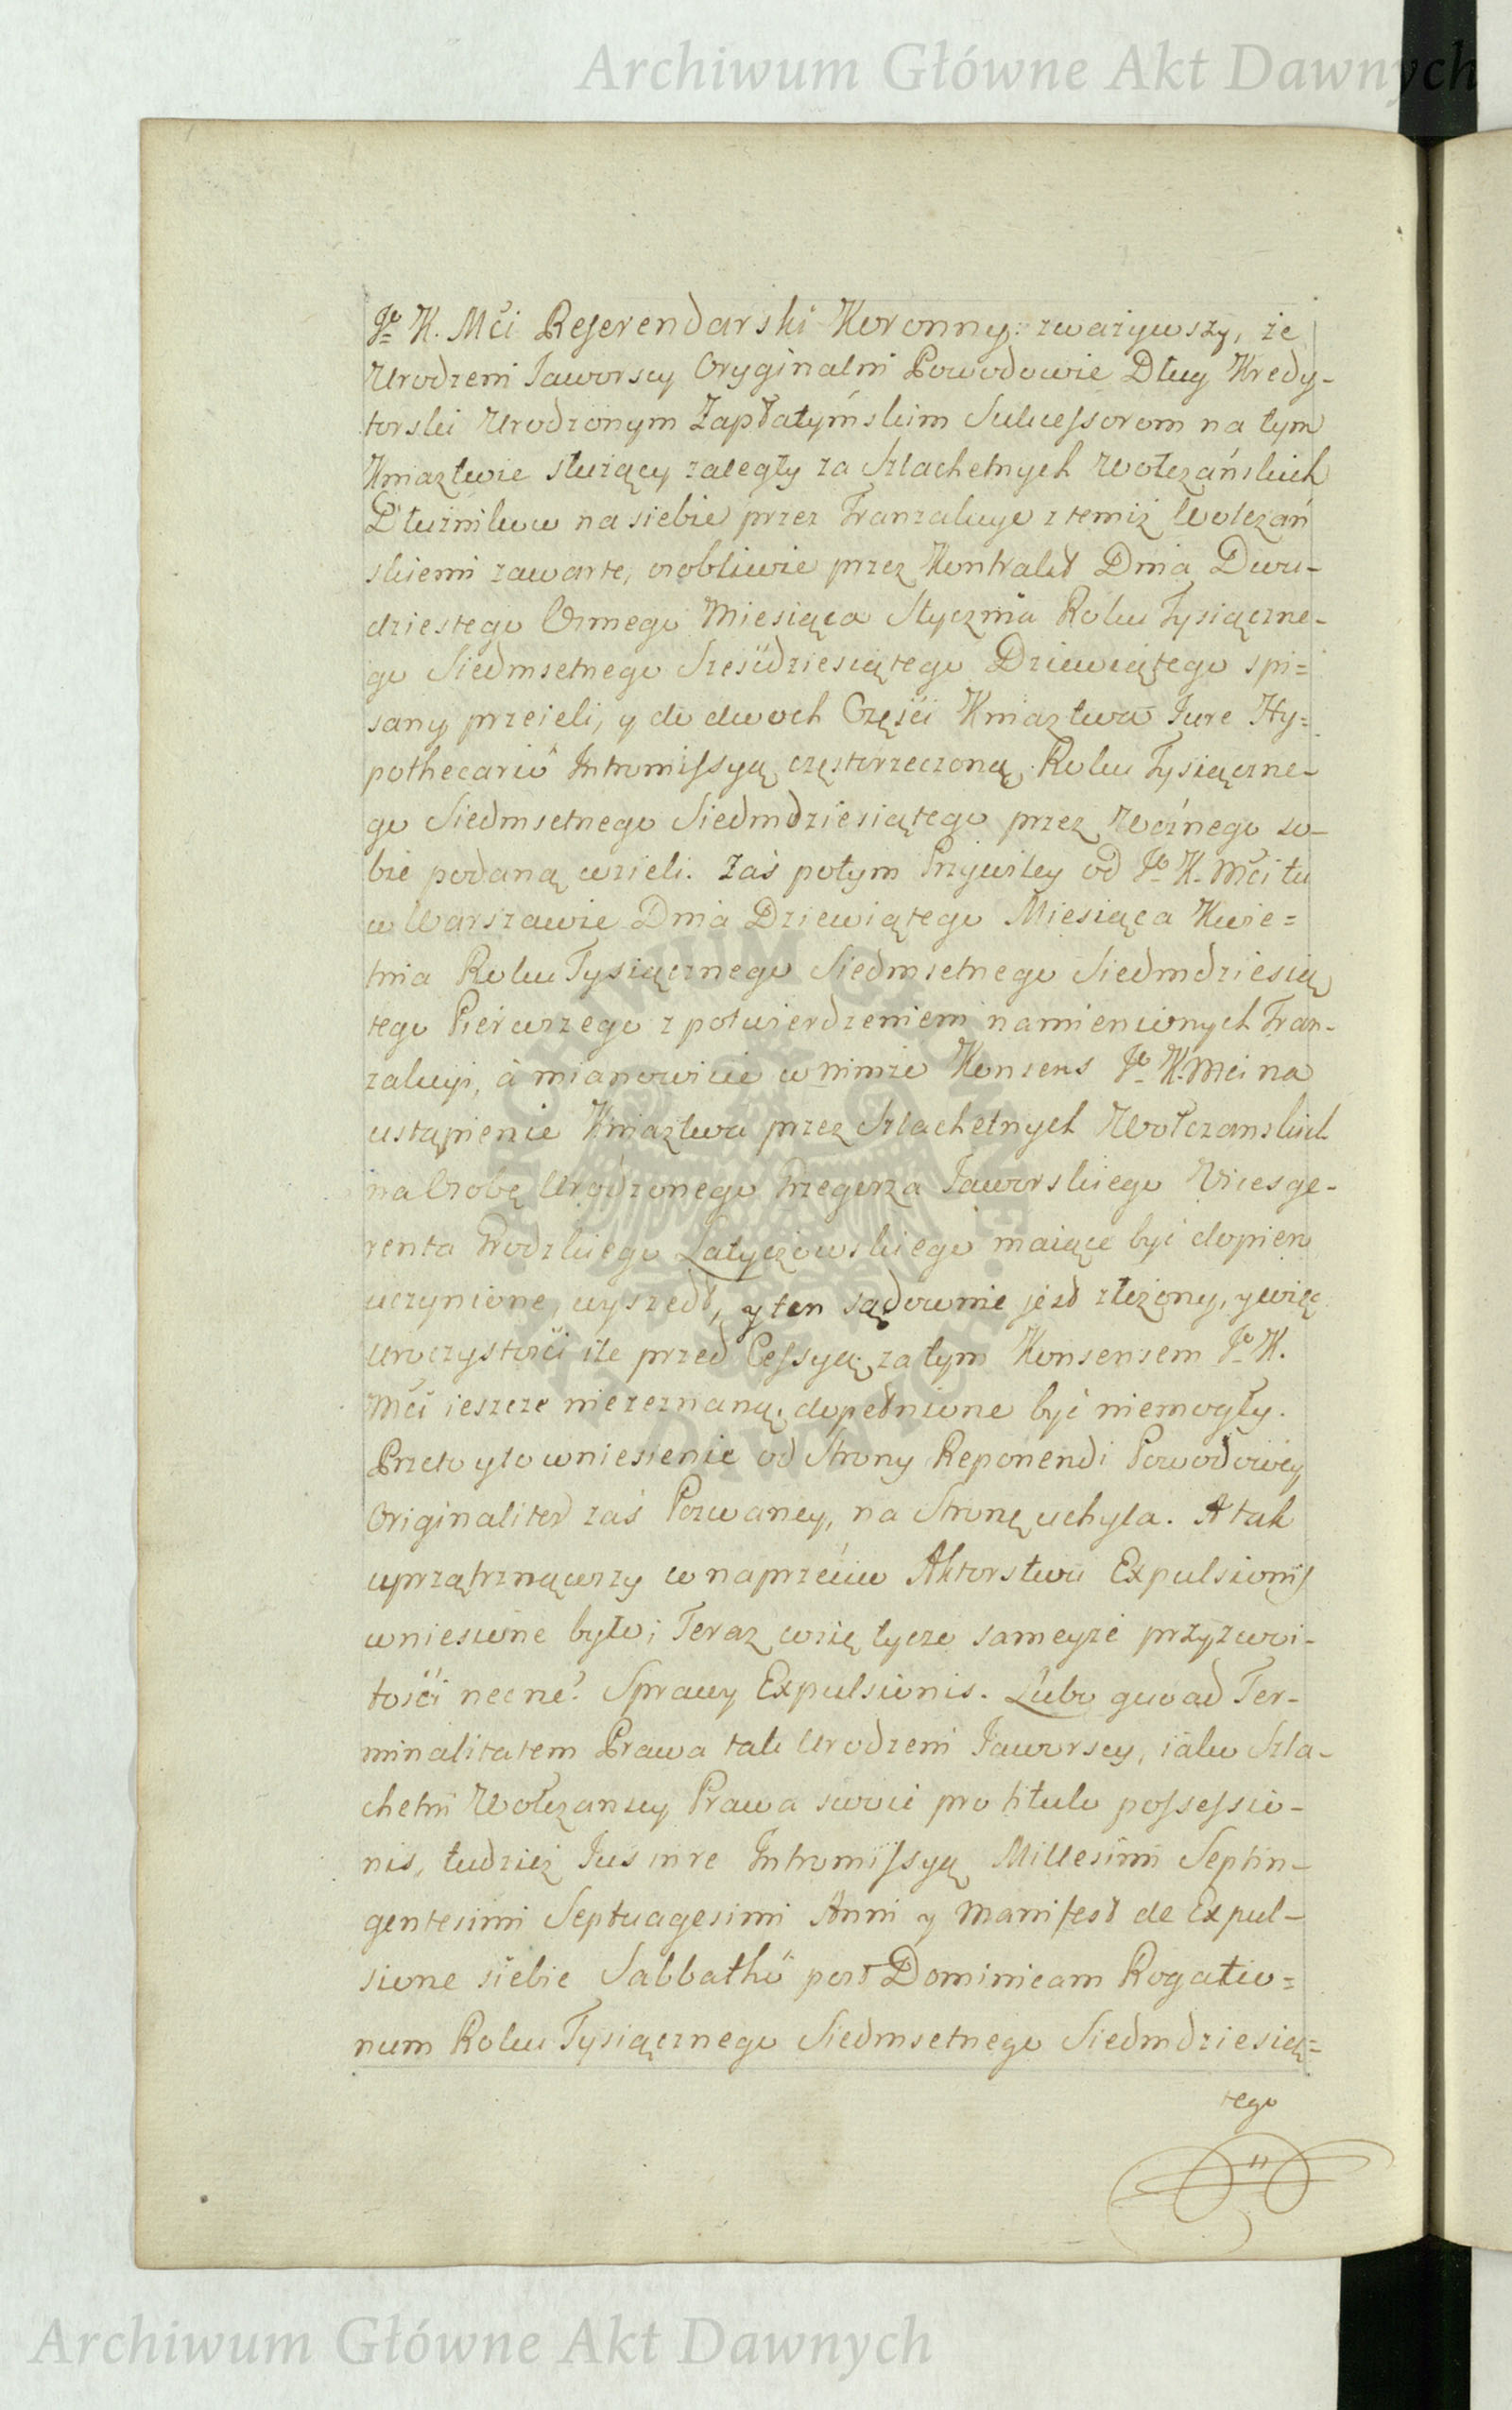 Archiwum Główne Akt Dawnych
Jo K. Mći Referendarski Koronny: zważywszy, że
Urodzeni Jaworscy Oryginalni Powodowie Dług Kredy-
torski Urodzonym Zapłatyńskim Sukcessorom na tym
Kniaztwie służący zaległy za Szlachetnych Wołczańskich
Dłużnikow na siebie przez Tranzakcye z temiż Wołczań
skiemi zawarte, osobliwie przez Kontrakt Dnia Dwu-
dziestego Osmego Miesiąca Stycznia Roku Tysiączne-
go Siedmsetnego Sześćdziesiątego Dziewiątego spi=
sany przeieli, y do dwoch Części Kniaztwa Jure Hy=
pothecario Intromissyą częstorzeczoną Roku Tysiączne-
go Siedmsetnego Siedmdziesiątego przez Woźnego so-
bie podaną wzieli. Zaś potym Przywiley od Jo K. Mći tu
w Warszawie Dnia Dziewiątego Miesiąca Kwie=
tnia Roku Tysiącznego Siedmsetnego Siedmdziesią
tego Pierwszego z potwierdzeniem namienionych Tran-
zakcyi, à mianowicie w nimże Konsens Jo K. Mći na
ustąpienie Kniaztwa przez Szlachetnych Wołczanskich
na Osobę Urodzonego Grzegorza Jaworskiego Vicesge-
renta Grodzkiego Latyczowskiego maiące być dopiero
uczynione, wyszedł, y ten sądownie jest złożony, y więc
uroczystości ile przed Cessyą za tym Konsensem Jo K.
Mći ieszcze niezeznaną, dopełnione być niemogły.
Przeto y to wniesienie od Strony Reponendi Powodowey
Originaliter zaś Pozwaney, na Stronę uchyla. A tak
uprzątnąwszy co naprzeciw Aktorstwu Expulsionis
wniesione było; Teraz co się tycze sameyże przyzwoi-
tości necne? Sprawy Expulsionis. Lubo quoad Ter-
minalitatem Prawa tak Urodzeni Jaworscy, iako Szla-
chetni Wołczanscy Prawa swoie pro titulo possessio-
nis, tudzież Jus in re Intromissyą Millesimi Septin-
gentesimi Septuagesimi Anni y Manifest de Expul-
sione siebie Sabbatho post Dominicam Rogatio=
num Roku Tysiącznego Siedmsetnego Siedmdziesią=
tego
Archiwum Główne Akt Dawnych